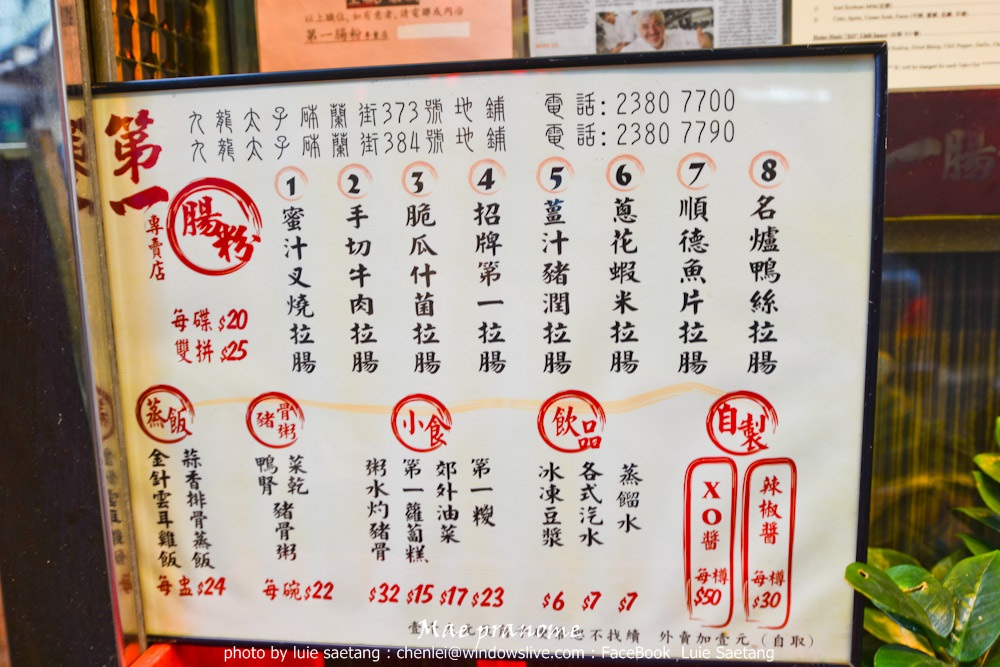 以上職位，如有意者，請電聯或內洽
第一腸粉專賣店
第一
腸粉
專賣店
九龍太子砵蘭街373號地鋪 電話：2380 7700
九龍太子砵蘭街384號地鋪 電話：2380 7790
1 蜜汁叉燒拉腸
2 手切牛肉拉腸
3 脆瓜什菌拉腸
4 招牌第一拉腸
5 薑汁豬潤拉腸
6 蔥花蝦米拉腸
7 順德魚片拉腸
8 名爐鴨絲拉腸
每碟 $20
雙拼 $25
蒸飯
蒜香排骨蒸飯
金針雲耳雞飯
每盅 $24
豬骨粥
菜乾豬骨粥
鴨腎
每碗 $22
小食
粥水灼豬骨 $32
第一蘿蔔糕 $15
郊外油菜 $17
第一糉 $23
飲品
冰凍豆漿 $6
各式汽水 $7
蒸餾水 $7
自製
XO醬 每樽 $50
辣椒醬 每樽 $30
不找續 外賣加壹元（自取）
Mae pranome
photo by luie saetang : chenlei@windowslive.com : FaceBook Luie Saetang